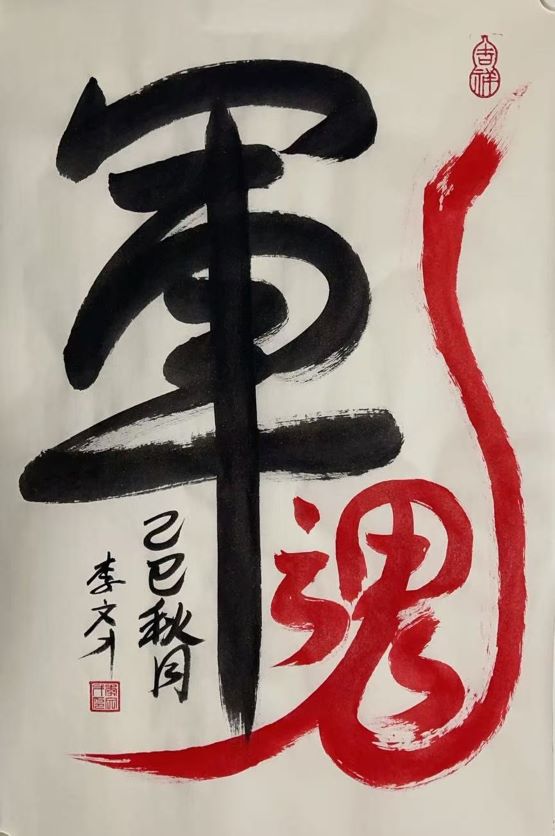 軍魂
己巳秋月
李文才
吉祥